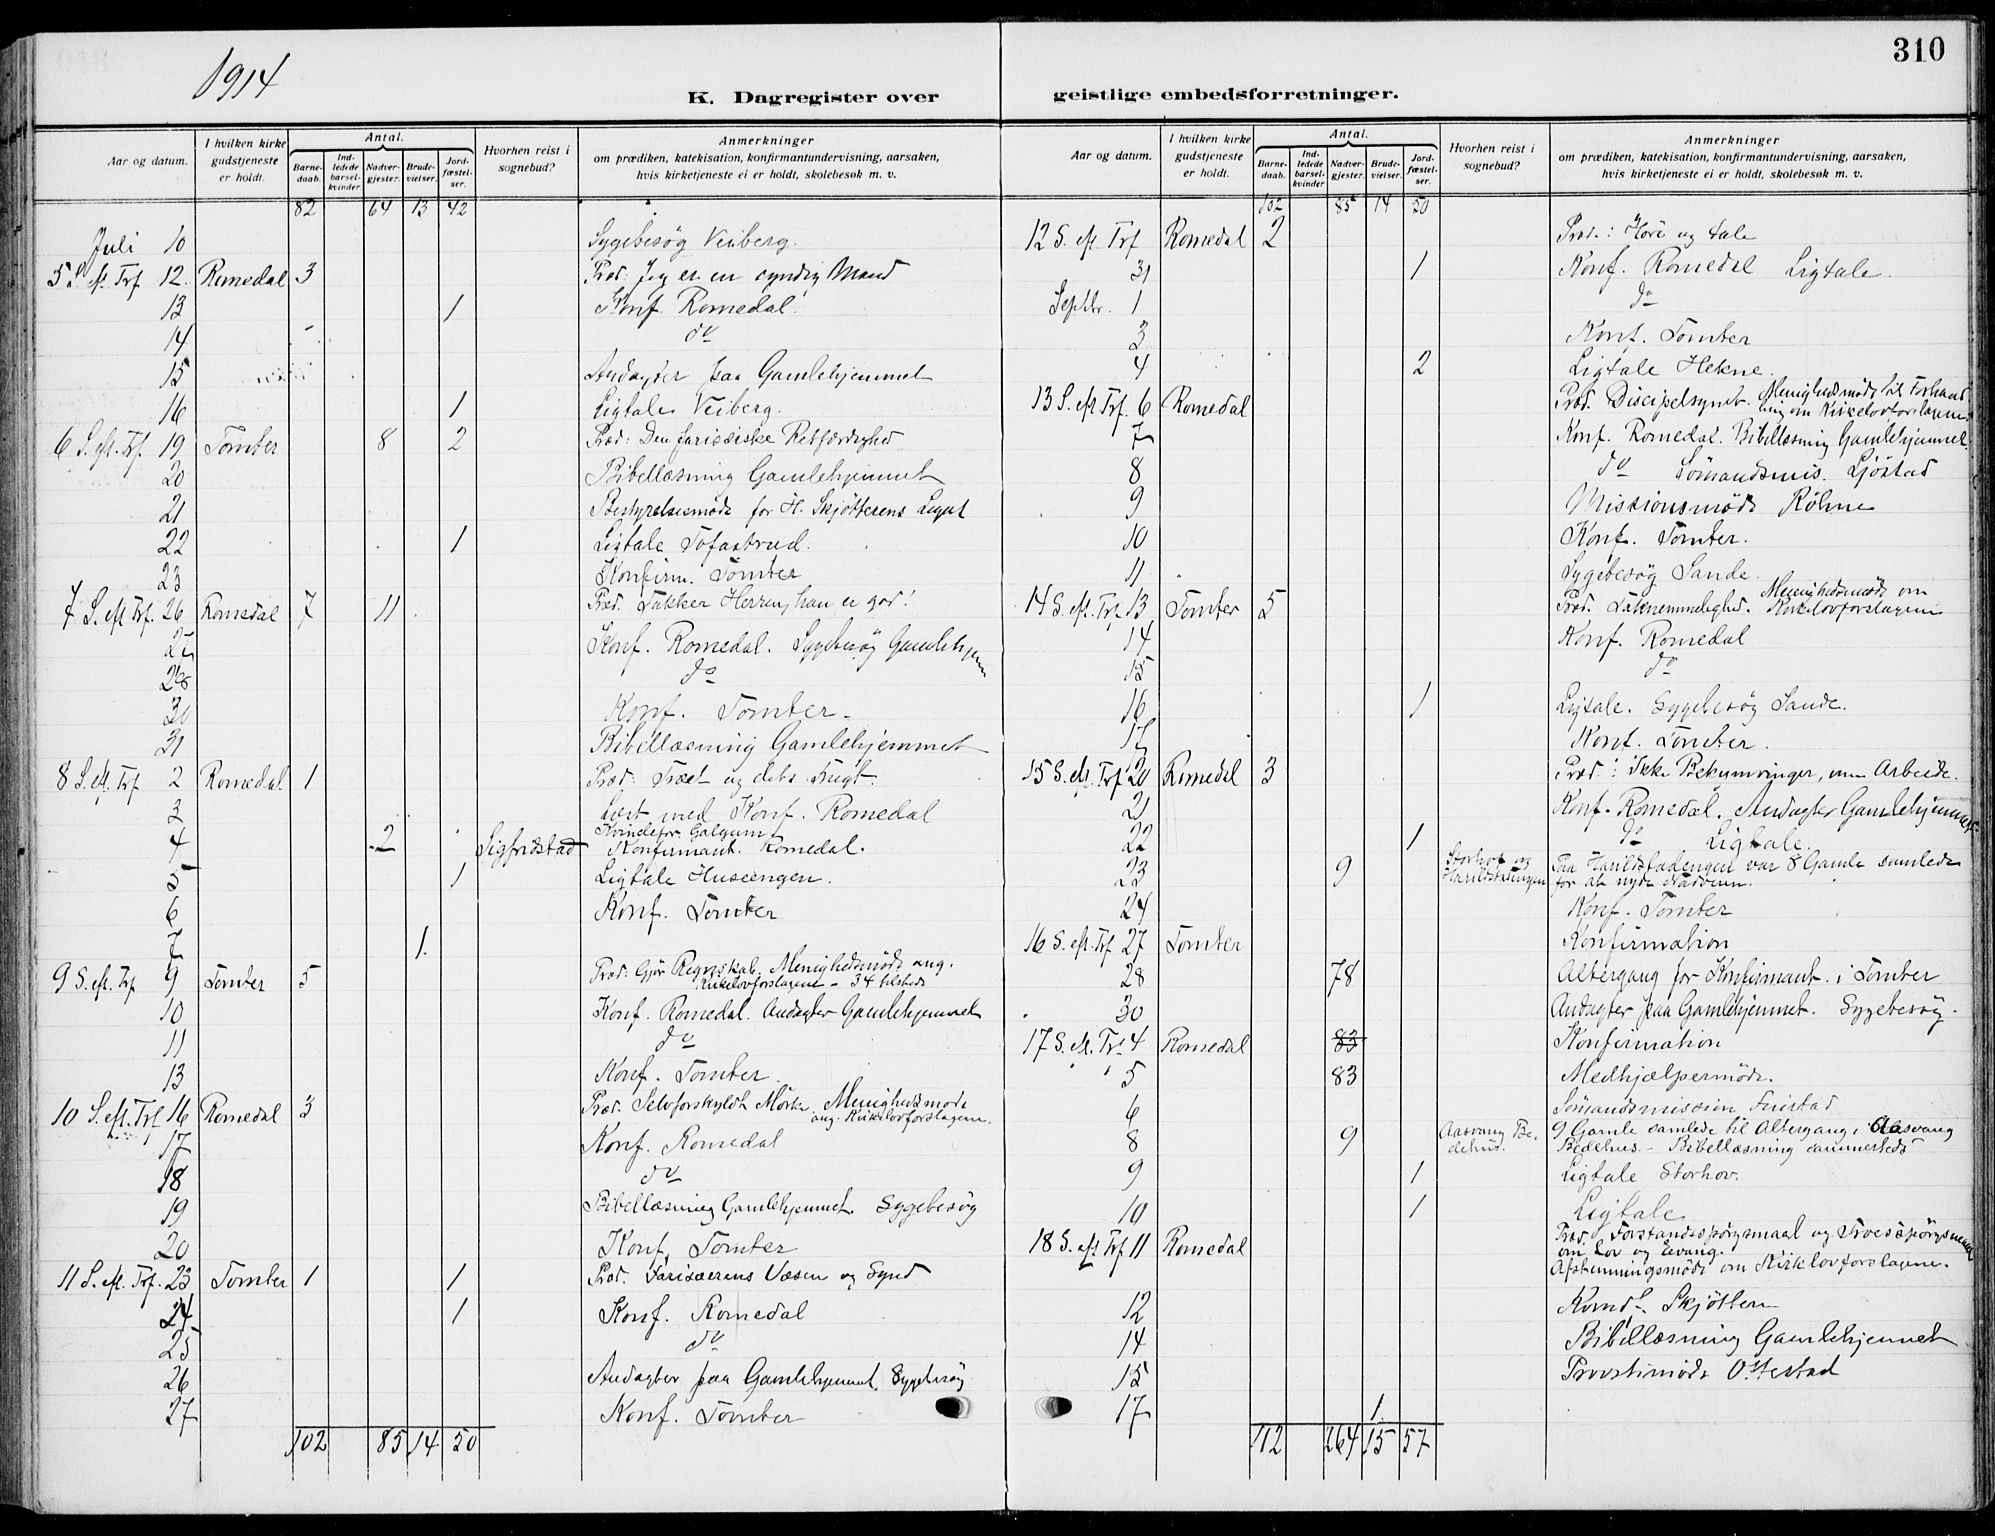 310
1914
K. Dagregister over geistlige embedsforretninger.
Aar og datum.
I hvilken kirke gudstjeneste er holdt.
Antal.
Barnedaab.
Indledede barselkvinder.
Nadvergjester.
Brudevielser.
Jordfæstelser.
Hvorhen reist i sognebud?
Anmerkninger
om prædiken, katekisation, konfirmantundervisning, aarsaken,
hvis kirketjeneste ei er holdt, skolebesøk m. v.
82 64 13 42
Juli 10 Sygebesøg Veiberg.
5 S. eft. Trf. 12. Romedal 3 Præd: Jeg er en syndig Mand
13 1 Konf. Romedal.
14 do
15 Andagter paa Gamlehjemmet
16 1 Ligtale Veiberg.
6 S. eft. Trf. 19 Tomter 8 2 Præd: Den farisæiske Retfærdighed
20 Bibellæsning Gamlehjemmet
21 Bestyrelsesmöde for H. Skjötterens Legat
22 1 Ligtale Tofastrud.
23 Konfirm. Tomter
7 S. eft Trf. 26 Romedal 7 11 Præd. Takker Herren, han er god!
27 Konf. Romedal. Sygebesøg Gamlehjem
28 do
30 Konf. Tomter.
31 Bibellæsning Gamlehjemmet
8 S. eft Trf 2 Romedal 1 Præd: Træet og dets Frugt.
3 med Konf. Romedal
Kvindefor. Galgum
4 2 Sigfridstad Konfirmant. Romedal.
5 1 Ligtale Huseengen.
6 Konf. Tomter
7 1.
9 S. eft. Trf 9 Tomter 5 Præd: Gjør Regnskab. Menighedsmöde ang.
Kirkelovforslagene - 34 tilstede
10 Konf. Romedal. Andagter Gamlehjemmet
11 do
13 Konf. Tomter.
10 S. eft. Trf 16 Romedal 3 Præd. Selvforskyldt Mørke. Menighedsmøde
ang. Kirkelovforslagene.
17 Konf. Romedal
18 do
19 Bibellæsning Gamlehjemmet. Sygebesög
20 Konf. Tomter
11 S. eft. Trf. 23 Tomter 1 1 Præd. Farisæerens Væsen og Synd
24 1 Konf. Romedal
25 do
26 Andagter paa Gamlehjemmet, Sygebesög
27 Konf. Tomter
102 85 14 50
Aar og datum.
I hvilken kirke gudstjeneste er holdt.
Antal.
Barnedaab.
Indledede barselkvinder
Nadvergjester.
Brudevielser.
Jordfæstelser.
Hvorhen reist i sognebud?
Anmerkninger
om prædiken, katekisation, konfirmantundervisning, aarsaken,
hvis kirketjeneste ei er holdt, skolebesøk m. v.
102 85 14 50
12 S. eft. Trf Romedal 2 Præd.: Höre og tale
31 1 Konf. Romedal Ligtale.
Septbr. 1 do
3 Konf. Tomter
4 2 Ligtale Hekne.
13 S. eft Trf. 6 Romedal Præd. Discipelsynet. Menighedsmöde til Forhand
ling om Kirkelovforslagene.
7 Konf. Romedal. Bibellæsning Gamlehjemmet.
8 do Sömandsmis. Ljöstad
9 Missionsmöde Röhne
10 Konf. Tomter.
11 Sygebesög Sande.
14 S. eft. Trf. 13 Tomter 5 Præd. Taknemmelighed. Menighedsmöde om
Kirkelovforslagene
14 Konf. Romedal
15 do
16 1 Ligtale. Sygebesög Sande.
17 Konf. Tomter.
15 S. eft. Trf 20 Romedal 3 Præd.: Ikke Bekymringer, men Arbeide.
21 Konf. Romedal. Andagter Gamlehjemmet.
22 1 do Ligtale.
23 9 Storhov og Harildstadengen Paa Harildstadengen var 8 Gamle samlede
for at nyde Nadveren.
24 Konf. Tomter
16 S. eft. Trf 27 Tomter Konfirmation
28 78 Altergang for Konfirmant. i Tomter
30 Andagter paa Gamlehjemmet. Sygebesög.
17 S. eft. Trf 4 Romedal 83 Konfirmation
5 83 Medhjælpermöde.
6 Sömandsmission Finstad
8 9 Aasvang Be.dehus. 9 Gamle samlede til Altergang i Aasvang
Bedehus. - Bibellæsning sammesteds
9 1 Ligtale Storhov.
10 1 Ligtale
18 S. eft Trf 11 Romedal Præd. Forstandsspörgsmaal og Troesspörgsmaal
om Lov og Evang.
Afstemningsmöde om Kirkelovforslagene.
12 Komd. Skjötten
14 Bibellæsning Gamlehjemmet
15 Provstimöde Ottestad
17 1.
112 264 15 57